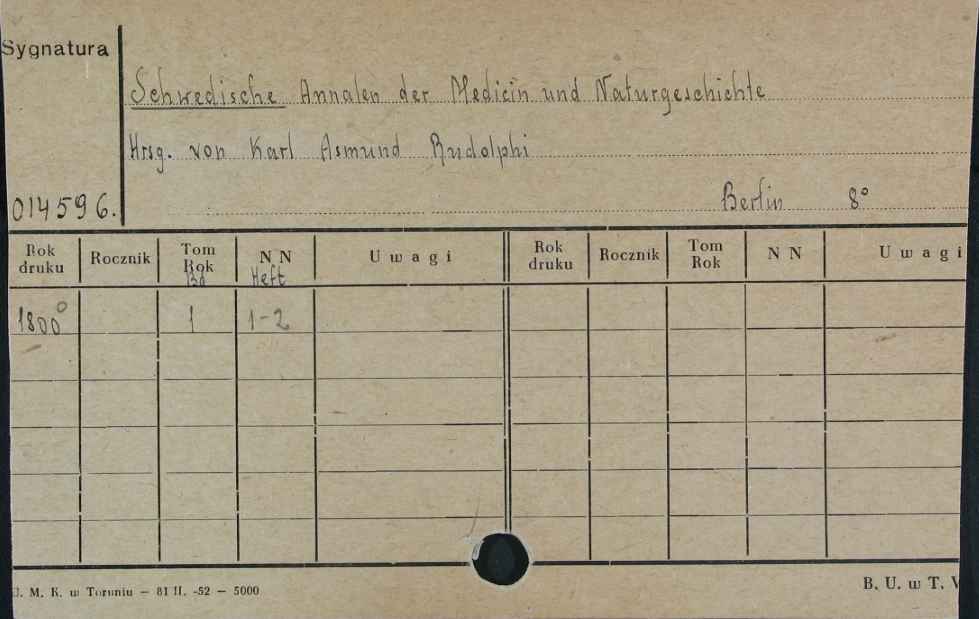 Sygnatura
Schwedische Annalen der Medicin und Naturgeschichte
Hrsg. von Karl Asmund Rudolphi
014596.
Berlin 8°
Rok druku Rocznik Tom Rok NN Uwagi Rok druku Rocznik Tom Rok NN Uwagi
Bd Heft
1800° 1 1-2
U. M. K. w Toruniu — 81 II. -52 — 5000
B. U. w T.